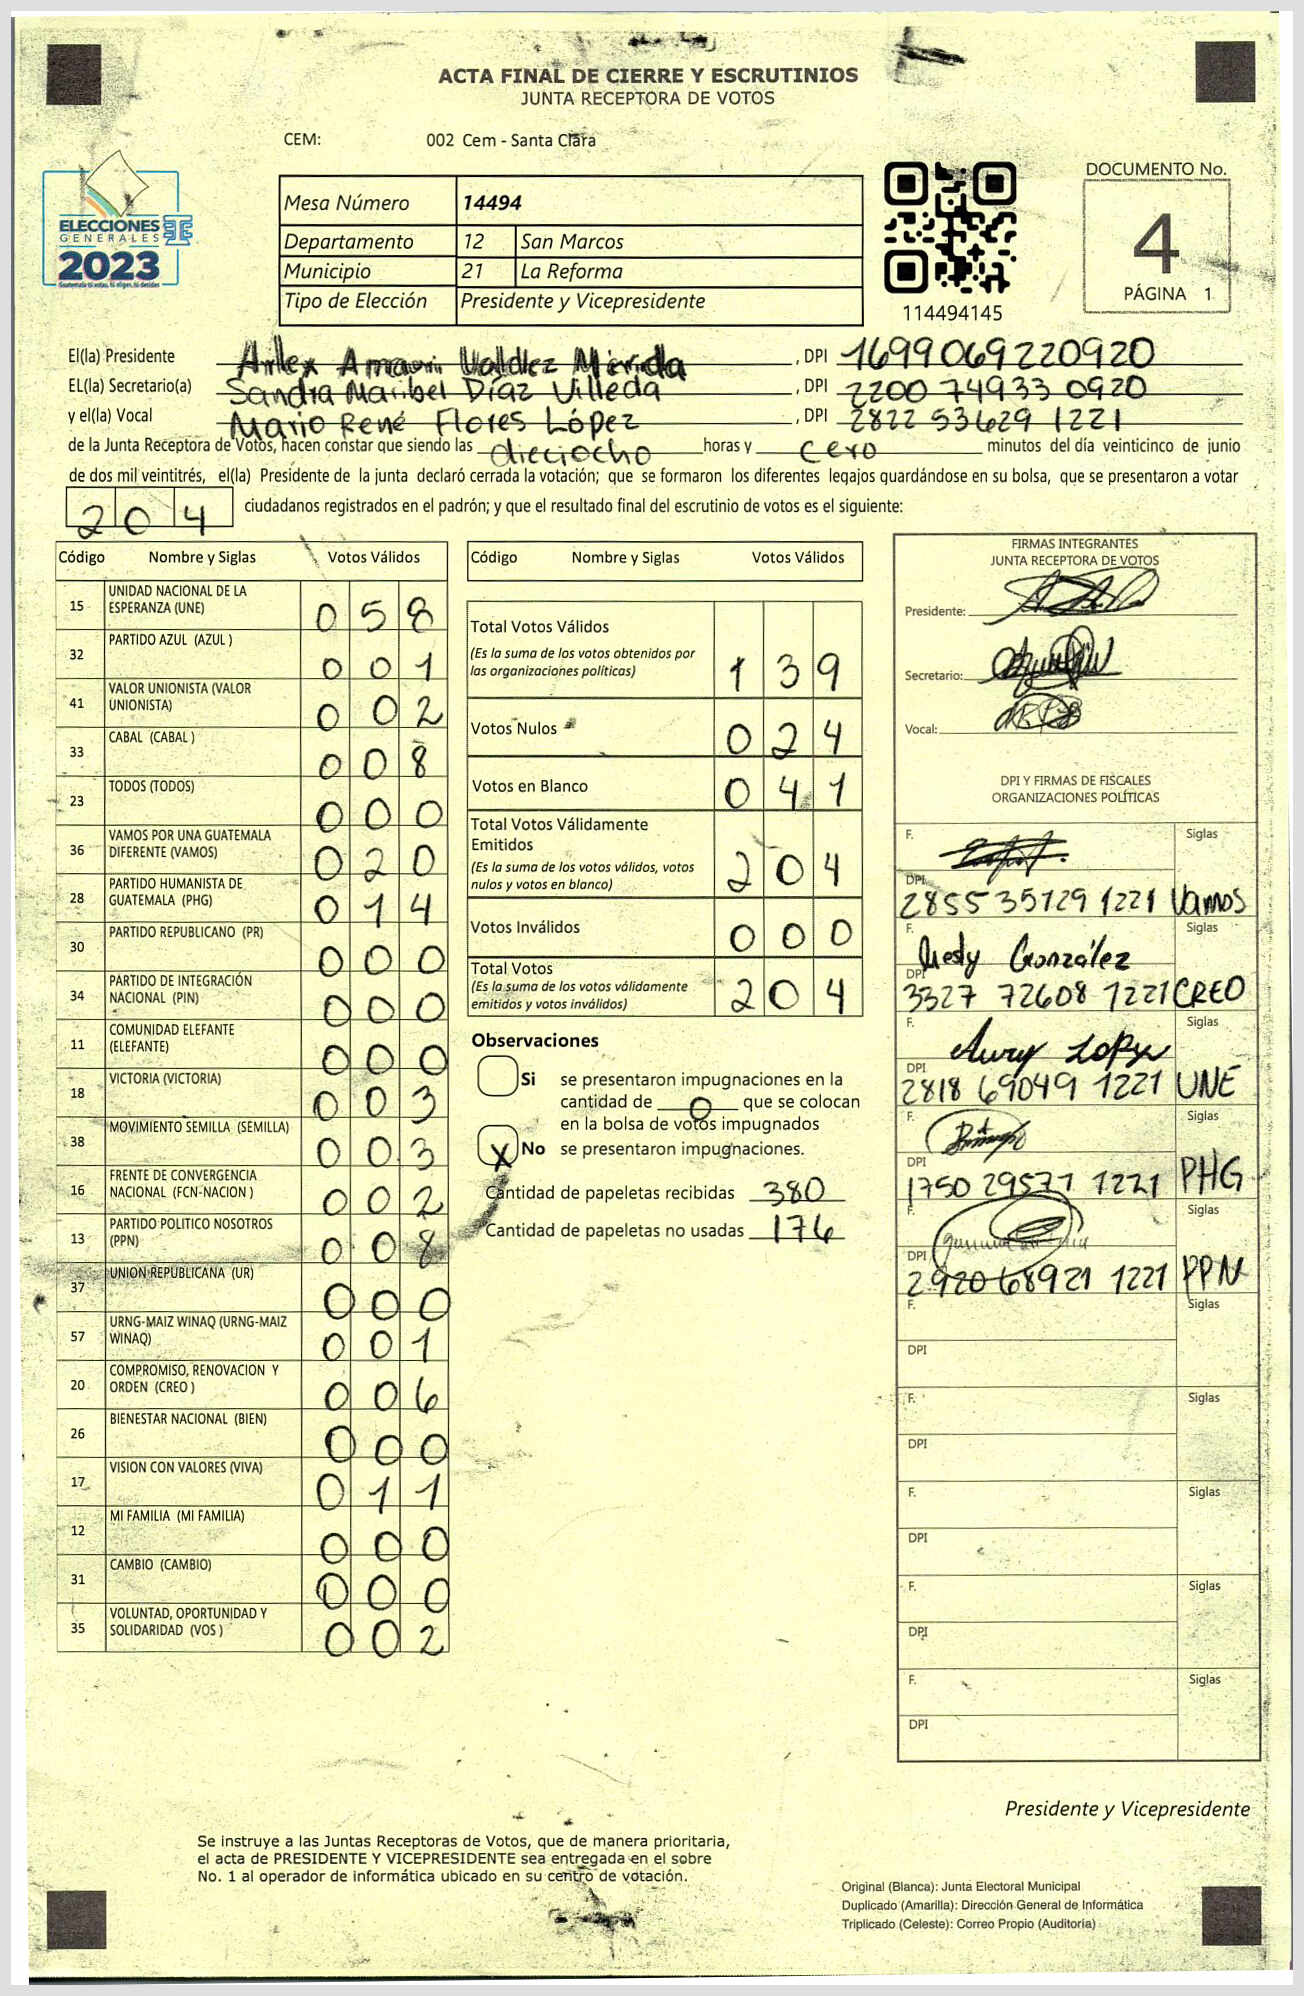 ACTA FINAL DE CIERRE Y ESCRUTINIOS
JUNTA RECEPTORA DE VOTOS
CEM: 002 Cem - Santa Clara
ELECCIONES
GENERALES
2023
Guatemala tú votas, tú eliges, tú decides
Mesa Número 14494
Departamento 12 San Marcos
Municipio 21 La Reforma
Tipo de Elección Presidente y Vicepresidente
114494145
DOCUMENTO No.
4
PÁGINA 1
El(la) Presidente Arlex Amauri Valdez Mérida , DPI 1699069220920
EL(la) Secretario(a) Sandra Maribel Díaz Villeda , DPI 2200 74933 0920
y el(la) Vocal Mario René Flores López , DPI 2822 53629 1221
de la Junta Receptora de Votos, hacen constar que siendo las dieciocho horas y cero minutos del día veinticinco de junio
de dos mil veintitrés, el(la) Presidente de la junta declaró cerrada la votación; que se formaron los diferentes legajos quardándose en su bolsa, que se presentaron a votar
204 ciudadanos registrados en el padrón; y que el resultado final del escrutinio de votos es el siguiente:
Código Nombre y Siglas Votos Válidos
15 UNIDAD NACIONAL DE LA ESPERANZA (UNE) 058
32 PARTIDO AZUL (AZUL ) 001
41 VALOR UNIONISTA (VALOR UNIONISTA) 002
33 CABAL (CABAL ) 008
23 TODOS (TODOS) 000
36 VAMOS POR UNA GUATEMALA DIFERENTE (VAMOS) 020
28 PARTIDO HUMANISTA DE GUATEMALA (PHG) 014
30 PARTIDO REPUBLICANO (PR) 000
34 PARTIDO DE INTEGRACIÓN NACIONAL (PIN) 000
11 COMUNIDAD ELEFANTE (ELEFANTE) 000
18 VICTORIA (VICTORIA) 003
38 MOVIMIENTO SEMILLA (SEMILLA) 003
16 FRENTE DE CONVERGENCIA NACIONAL (FCN-NACION ) 002
13 PARTIDO POLITICO NOSOTROS (PPN) 008
37 UNION REPUBLICANA (UR) 000
57 URNG-MAIZ WINAQ (URNG-MAIZ WINAQ) 001
20 COMPROMISO, RENOVACION Y ORDEN (CREO ) 006
26 BIENESTAR NACIONAL (BIEN) 000
17 VISION CON VALORES (VIVA) 011
12 MI FAMILIA (MI FAMILIA) 000
31 CAMBIO (CAMBIO) 000
35 VOLUNTAD, OPORTUNIDAD Y SOLIDARIDAD (VOS ) 002
Código Nombre y Siglas Votos Válidos
Total Votos Válidos
(Es la suma de los votos obtenidos por
las organizaciones políticas) 139
Votos Nulos 024
Votos en Blanco 041
Total Votos Válidamente
Emitidos
(Es la suma de los votos válidos, votos
nulos y votos en blanco) 204
Votos Inválidos 000
Total Votos
(Es la suma de los votos válidamente
emitidos y votos inválidos) 204
Observaciones
Si se presentaron impugnaciones en la
cantidad de 0 que se colocan
en la bolsa de votos impugnados
X No se presentaron impugnaciones.
Cantidad de papeletas recibidas 380
Cantidad de papeletas no usadas 176
FIRMAS INTEGRANTES
JUNTA RECEPTORA DE VOTOS
Presidente:
Secretario:
Vocal:
DPI Y FIRMAS DE FISCALES
ORGANIZACIONES POLÍTICAS
F. Siglas
DPI 2855 35129 1221 Vamos
F. González Siglas
DPI 3327 72608 1221 CREO
F. Aury Siglas
DPI 2818 69049 1221 UNE
F. Siglas
DPI 1750 29571 1221 PHG
F. Siglas
DPI 2920 68921 1221 PPN
F. Siglas
DPI
F. Siglas
DPI
F. Siglas
DPI
F. Siglas
DPI
F. Siglas
DPI
Presidente y Vicepresidente
Se instruye a las Juntas Receptoras de Votos, que de manera prioritaria,
el acta de PRESIDENTE Y VICEPRESIDENTE sea entregada en el sobre
No. 1 al operador de informática ubicado en su centro de votación.
Original (Blanca): Junta Electoral Municipal
Duplicado (Amarilla): Dirección General de Informática
Triplicado (Celeste): Correo Propio (Auditoría)